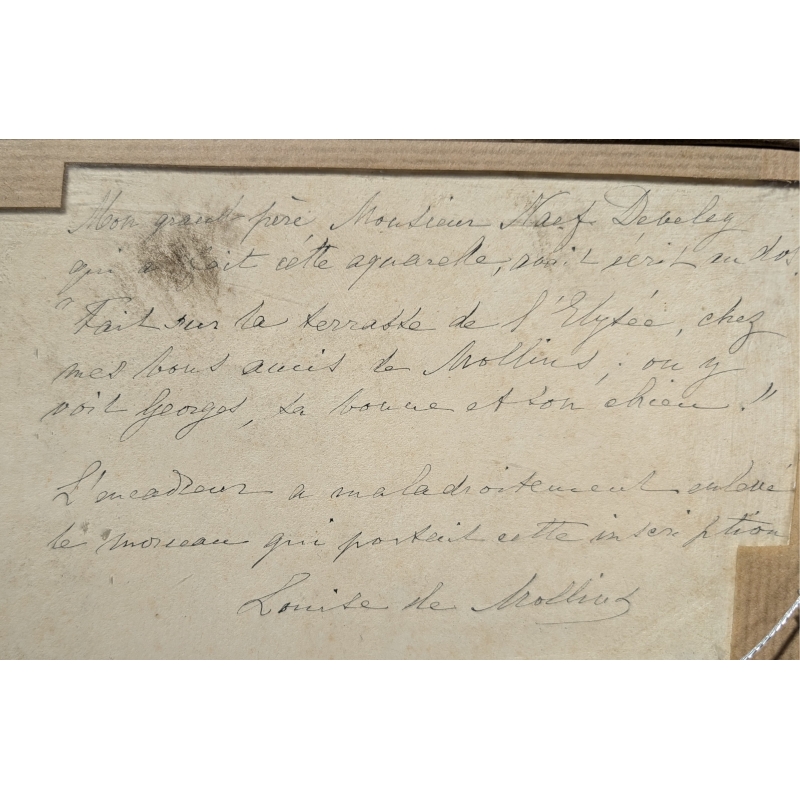 Mon grand-père Monsieur Naef Develey
qui avait cette aquarelle, avait écrit au dos.
"Fait sur la terrasse de l'Elysée, chez
mes bons amis de Mollins; on y
voit Georges, sa bonne et son chien."
L'encadreur a maladroitement enlevé
le morceau qui portait cette inscription
Louise de Mollins